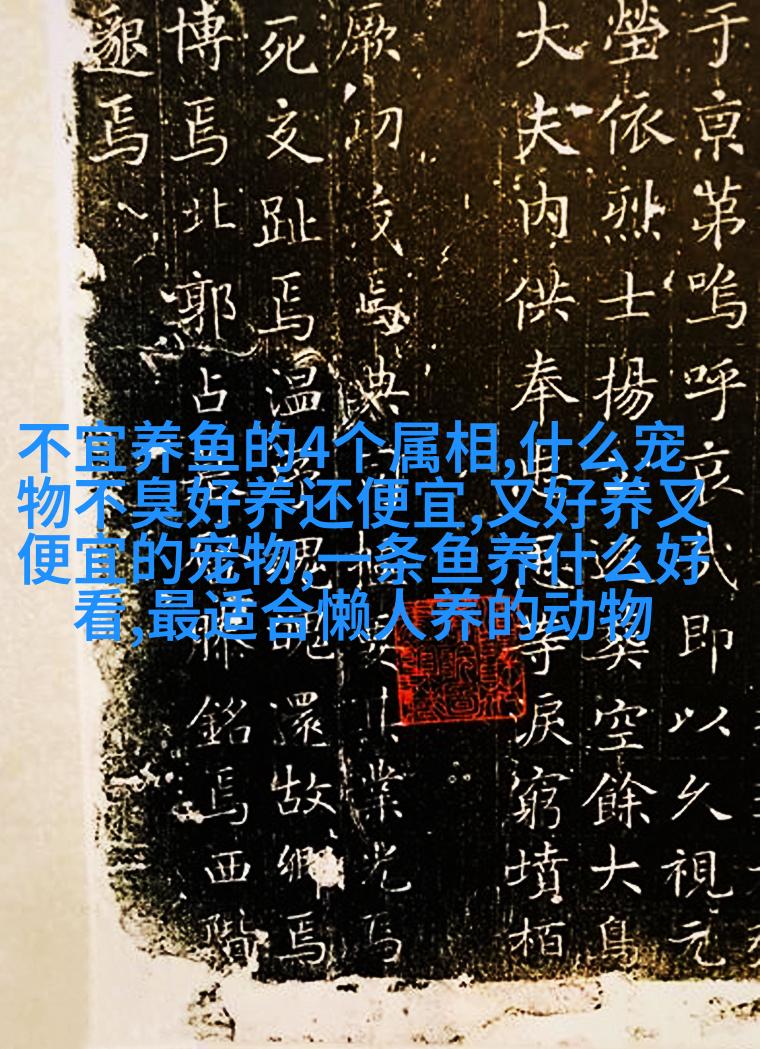 不宜养鱼的4个属相,什么宠
物不臭好养还便宜,又好养又
便宜的宠物,一条鱼养什么好
看,最适合懒人养的动物
于京苐嗚呼哀哉即以久視元
塋依烈士揚葬空餘大鳥
大夫内供奉等淚窮墳栢
厥功茂焉典業光焉
死交趾焉温還故鄉焉
博焉北郭占銘焉西階
邈焉